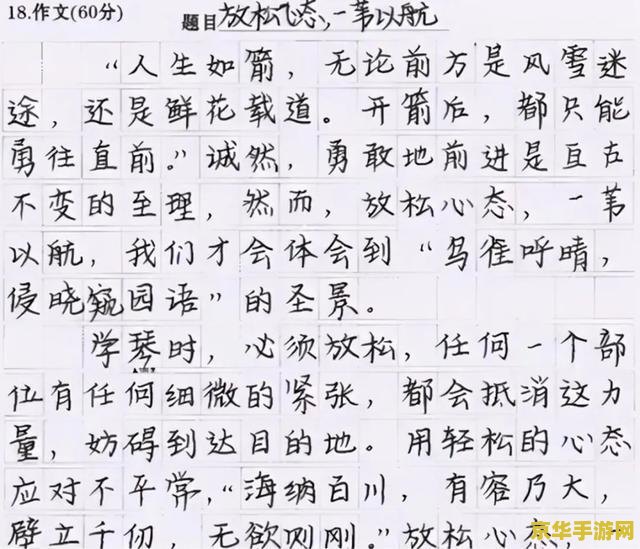 18.作文(60分)
题目放松心态,一苇以航
“人生如箭，无论前方是风雪迷
途，还是鲜花载道。开箭后，都只能
勇往直前。”诚然，勇敢地前进是亘古
不变的至理，然而，放松心态，一苇
以航，我们才会体会到“鸟雀呼晴，
侵晓窥园语”的圣景。
学琴时，必须放松，任何一个部
位有任何细微的紧张，都会抵消这力
量，妨碍到达目的地。用轻松的心态
应对不平常，“海纳百川，有容乃大，
壁立千仞，无欲则刚。”放松心态
京华手游网